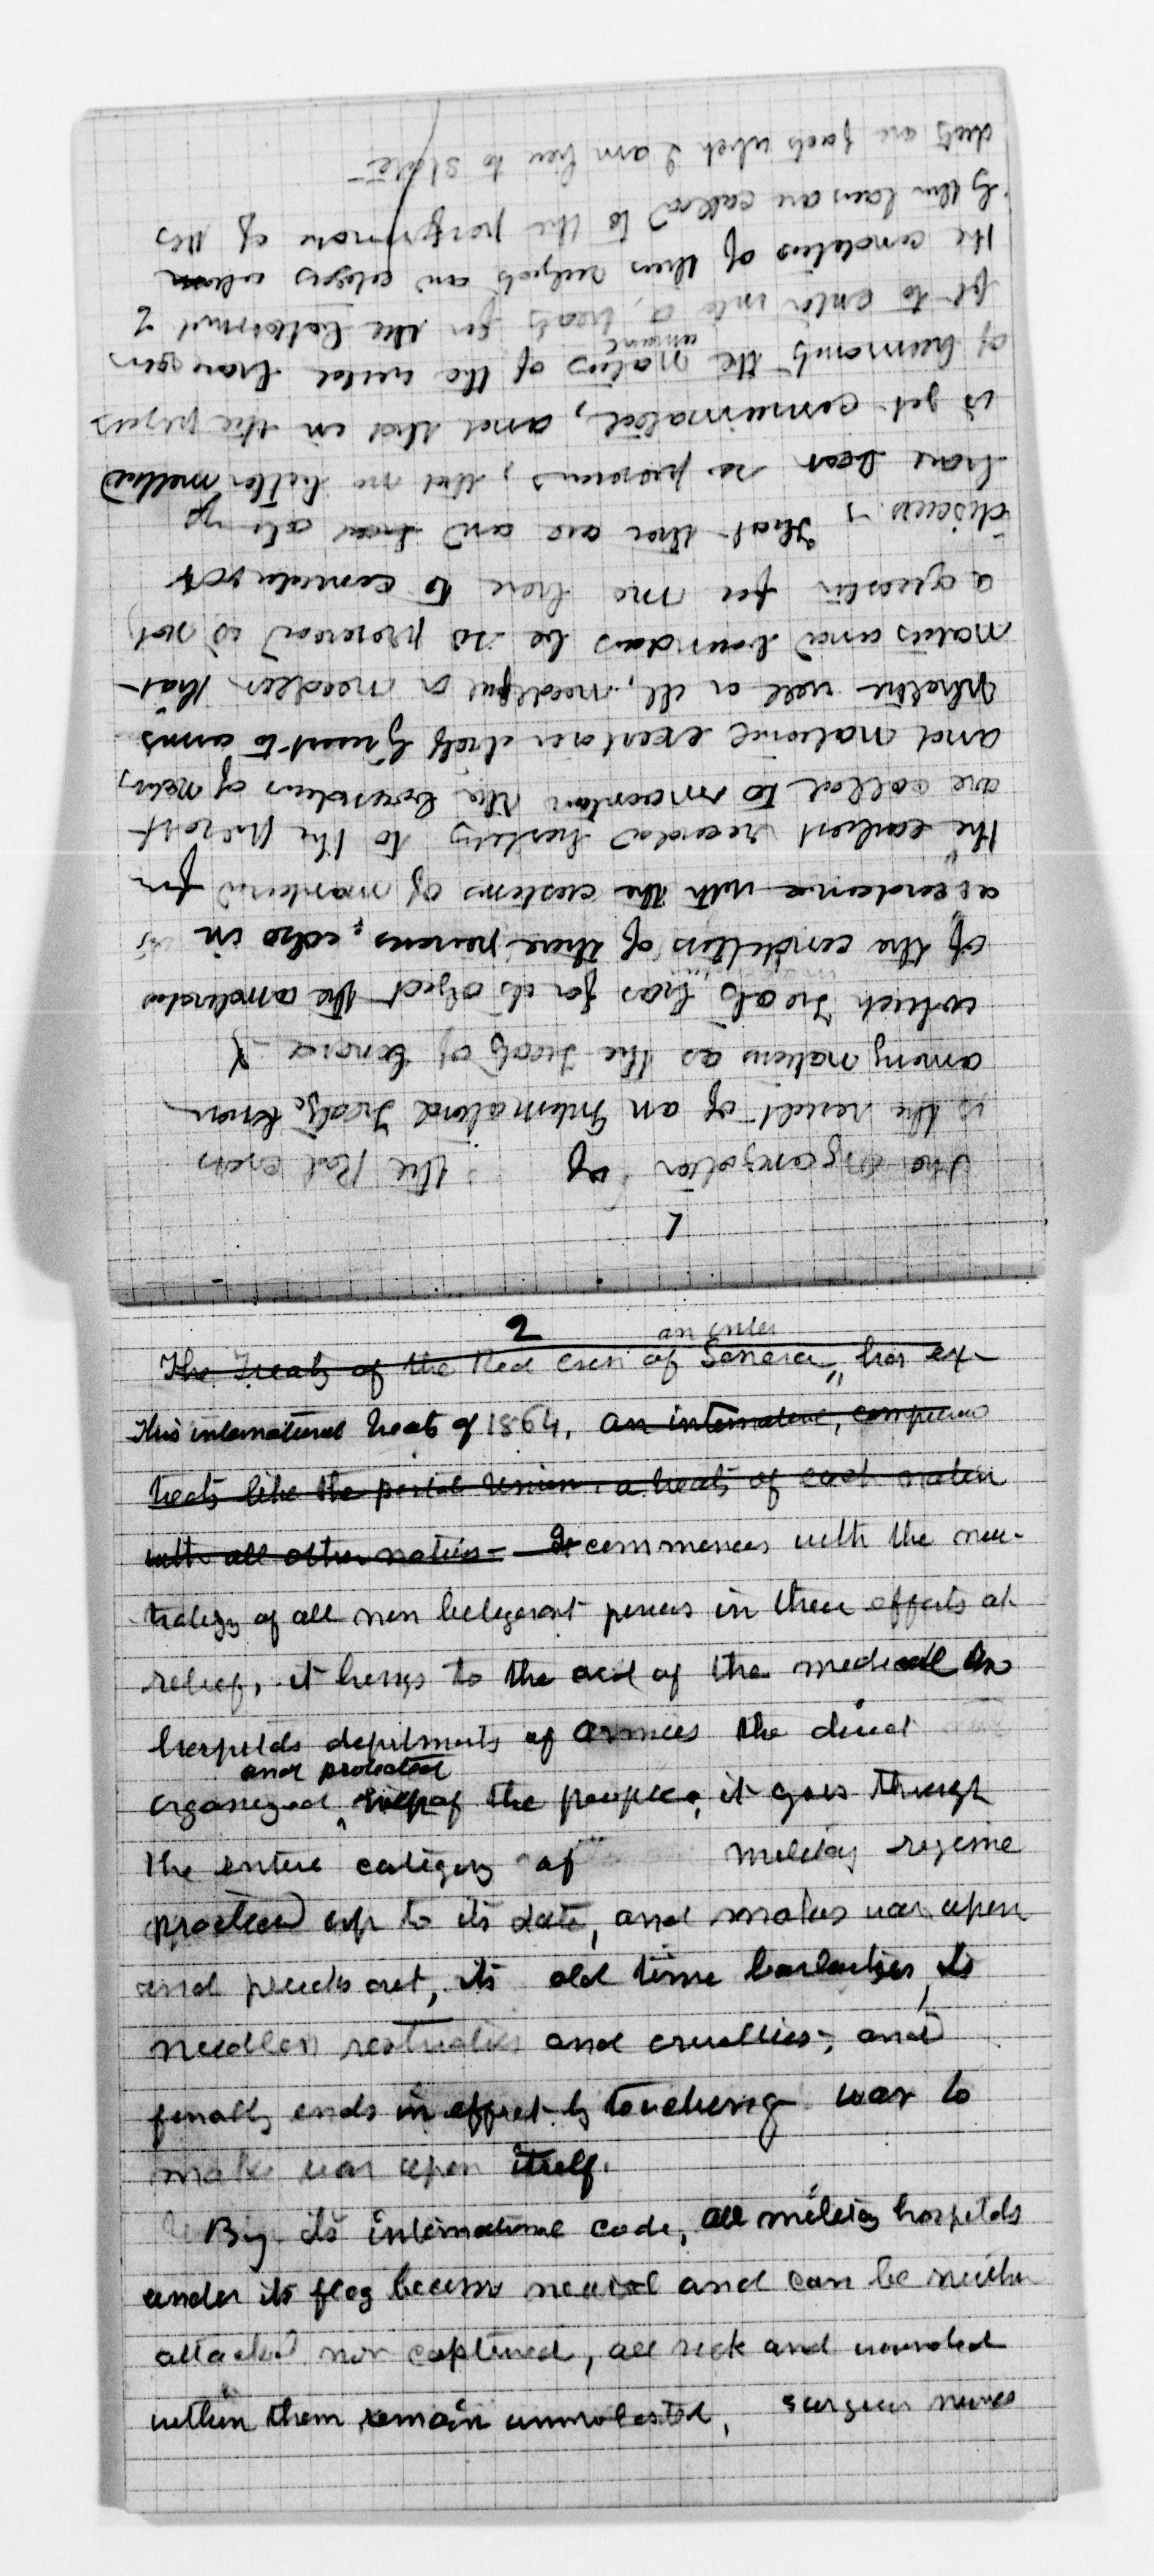 1
The organization of the Red Cross
is the result of an International Treaty, known
among nations as the Treaty of Geneva &
which Treaty has for its object the amelioration
of the condition of those persons, who in
accordance with the customs of mankind from
the earliest recorded history to the present
are called to maintain the boundaries of nations,
and national existence itself by resort to arms
Whether well or ill, needful or needless that
nations and boundaries be so preserved is not
a question for me here to consider or
discuss. That they are and have always
have been so preserved, that no better method
is yet consummated, and that in the progress
of humanity the nations of the world have seen
fit to enter into a treaty for the betterment of
the condition of their subjects and citizens whom
by their laws are called to the performance of this
duty are facts which I am here to state
2
an inter
The Treaty of the Red Cross of Geneva, has ex-
This international treaty of 1864, an international, compassed
treaty like the postal Union, a treaty of each nation
with all other nations - It commences with the neu-
trality of all non beligerant persons in their efforts at
relief, it brings to the aid of the medical and
hospitals departments of armies the direct
and protected
organized help of the people, it goes through
the entire category of military regime
practiced up to its date, and makes war upon
and plucks out, its old time barbarties, its
needless restraints and cruelties; and
finally ends in effect by teaching war to
make war upon itself.
By its international code, all military hospitals
under its flag become neutral and can be neither
attacked nor captured, all sick and wounded
within them remain unmolested, surgeons nurses